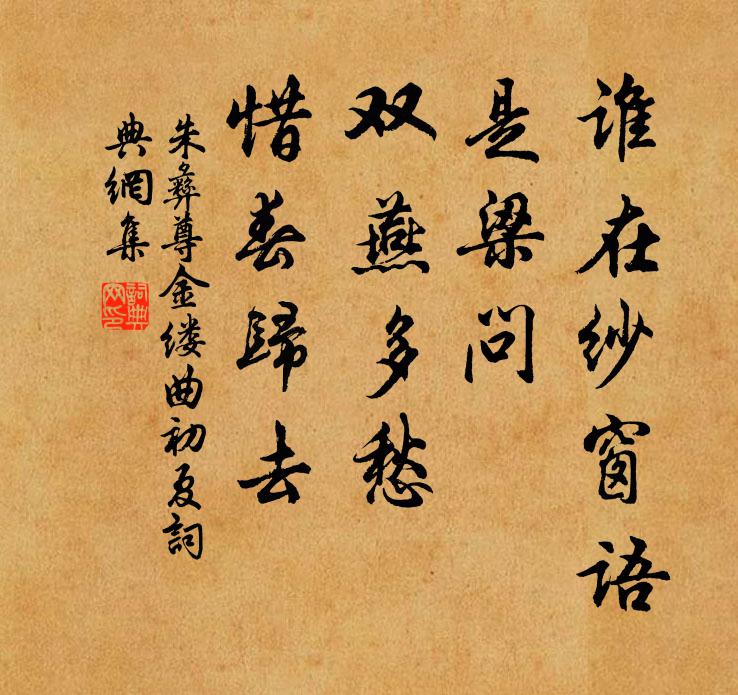 谁在纱窗语
是梁问
双燕多愁
惜春归去
朱彝尊金缕曲初夏詞
典網集
詞典網印